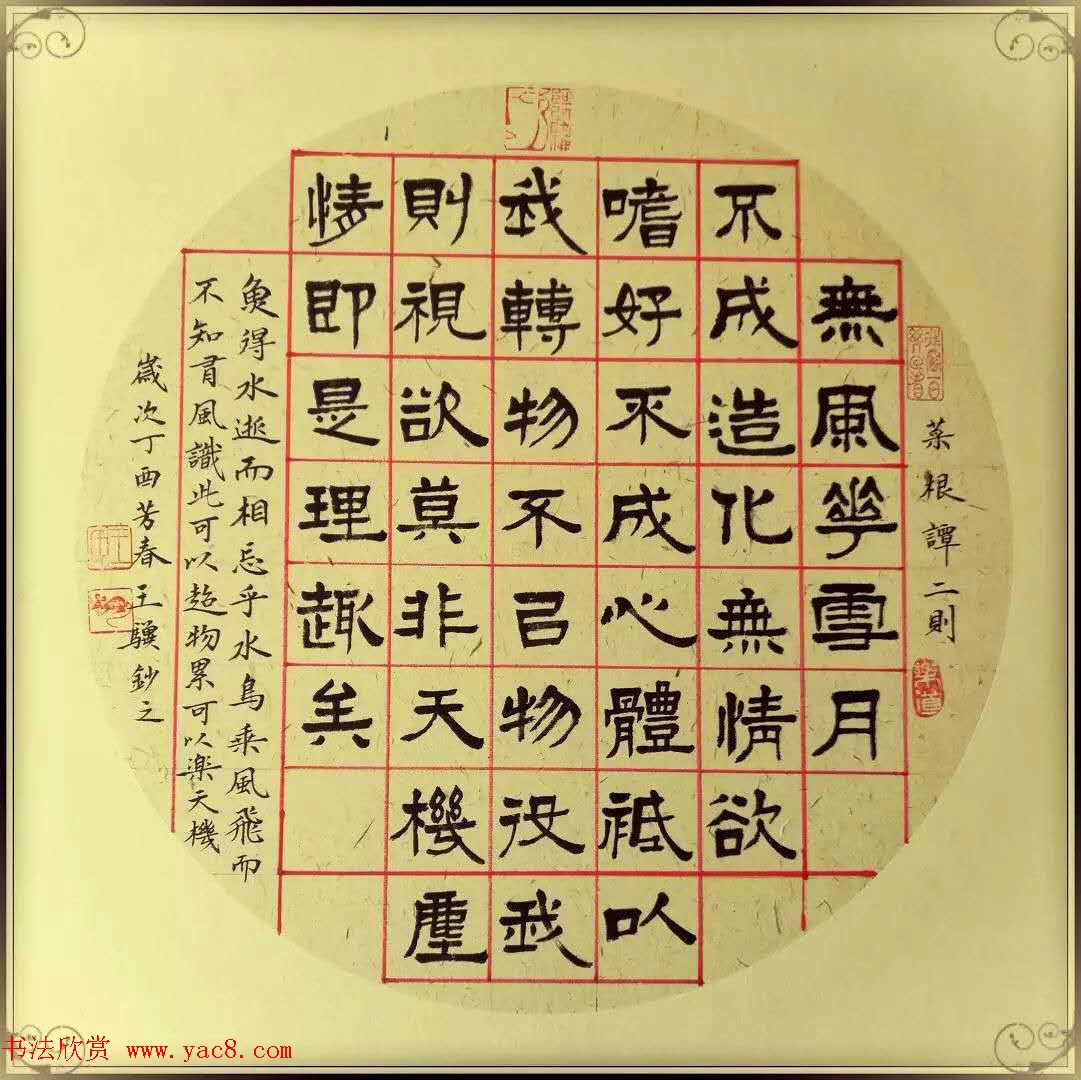 菜根譚二則
無風花雪月
不成造化無情欲
嗜好不成心體祗以
我轉物不以物役我
則視欲莫非天機塵
情即是理趣矣
魚得水逝而相忘乎水鳥乘風飛而
不知有風識此可以超物累可以樂天機
歲次丁酉芳春王驥鈔之
书法欣赏 www.yac8.com